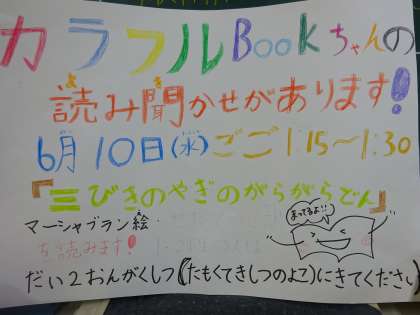 カラフルBookちゃんの
読み聞かせがあります!
6月10日(水)ごご1:15～1:30
『三びきのやぎのがらがらどん』
マーシャブラン絵
を読みます!
まってるよ!!
だい2おんがくしつ(たもくてきしつのよこ)にきてください